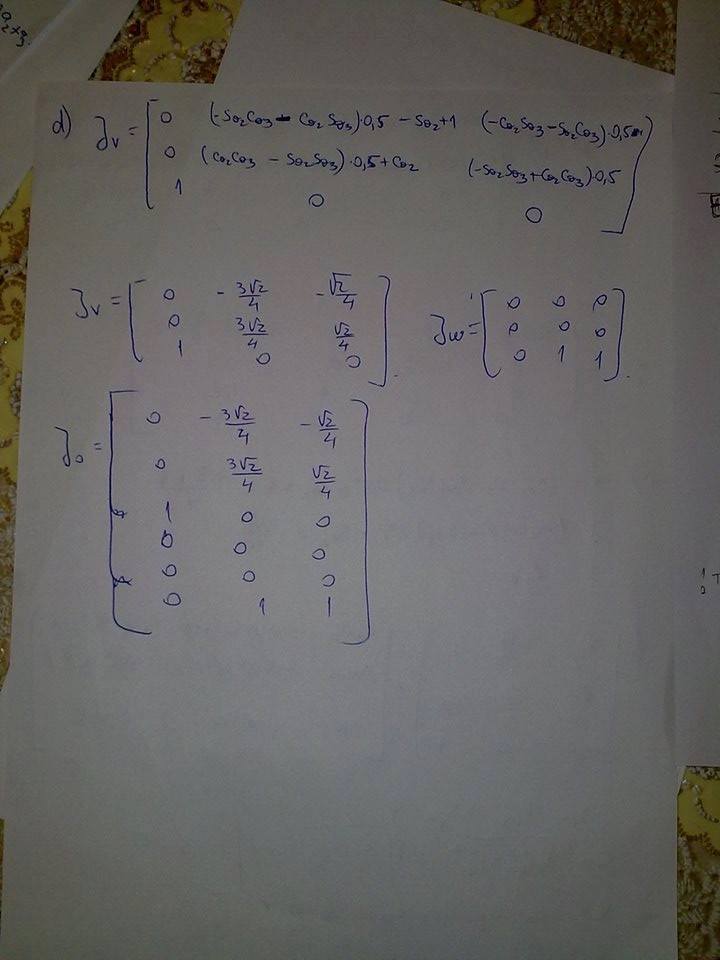 a₂+q₃
d) Jv = [ 0 (-Sθ₂Cθ₃ - Cθ₂Sθ₃)·0,5 - Sθ₂·1 (-Cθ₂Sθ₃ - Sθ₂Cθ₃)·0,5
0 (Cθ₂Cθ₃ - Sθ₂Sθ₃)·0,5 + Cθ₂ (-Sθ₂Sθ₃ + Cθ₂Cθ₃)·0,5
1 0 0 ]
Jv = [ 0 -3√2/4 -√2/4
0 3√2/4 √2/4
1 0 0 ].
Jw = [ 0 0 0
0 0 0
0 1 1 ].
J₀ = [ 0 -3√2/4 -√2/4
0 3√2/4 √2/4
1 0 0
0 0 0
0 0 0
0 1 1 ]